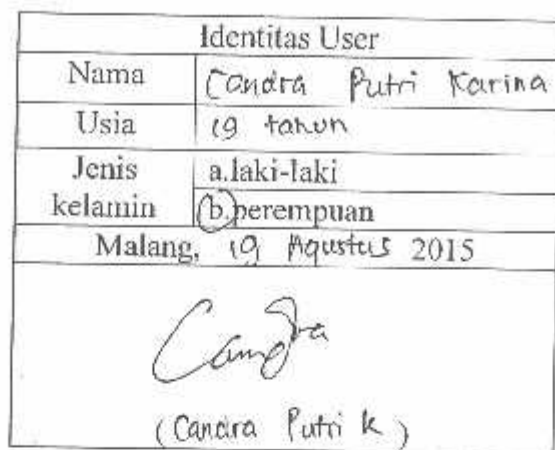 Identitas User
Nama Candra Putri Karina
Usia 19 tahun
Jenis kelamin a.laki-laki
b.perempuan
Malang, 19 Agustus 2015
Candra
(Candra Putri K)